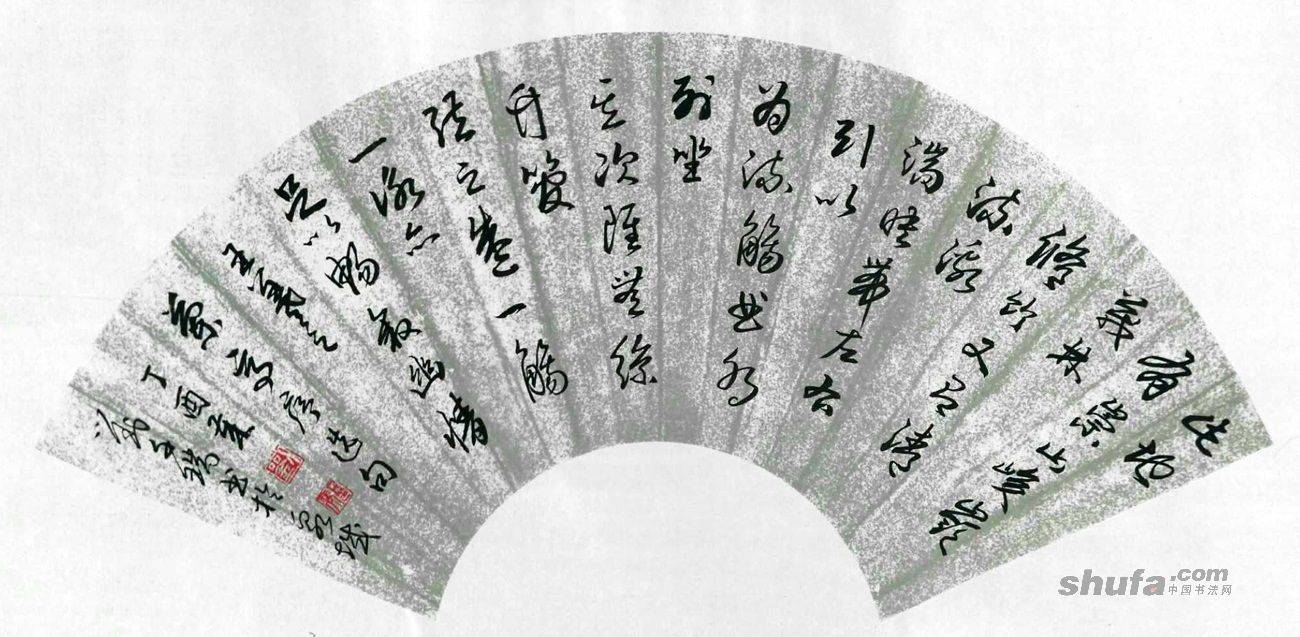 此地
有崇山峻嶺
茂林
修竹又有清
流激
湍暎帶左右
引以
为流觴曲水
列坐
其次雖無絲
竹管
弦之盛一觴
一詠亦
足以暢敘幽情
王羲之
蘭亭序选句
丁酉年
書於
shufa.com
中国书法网